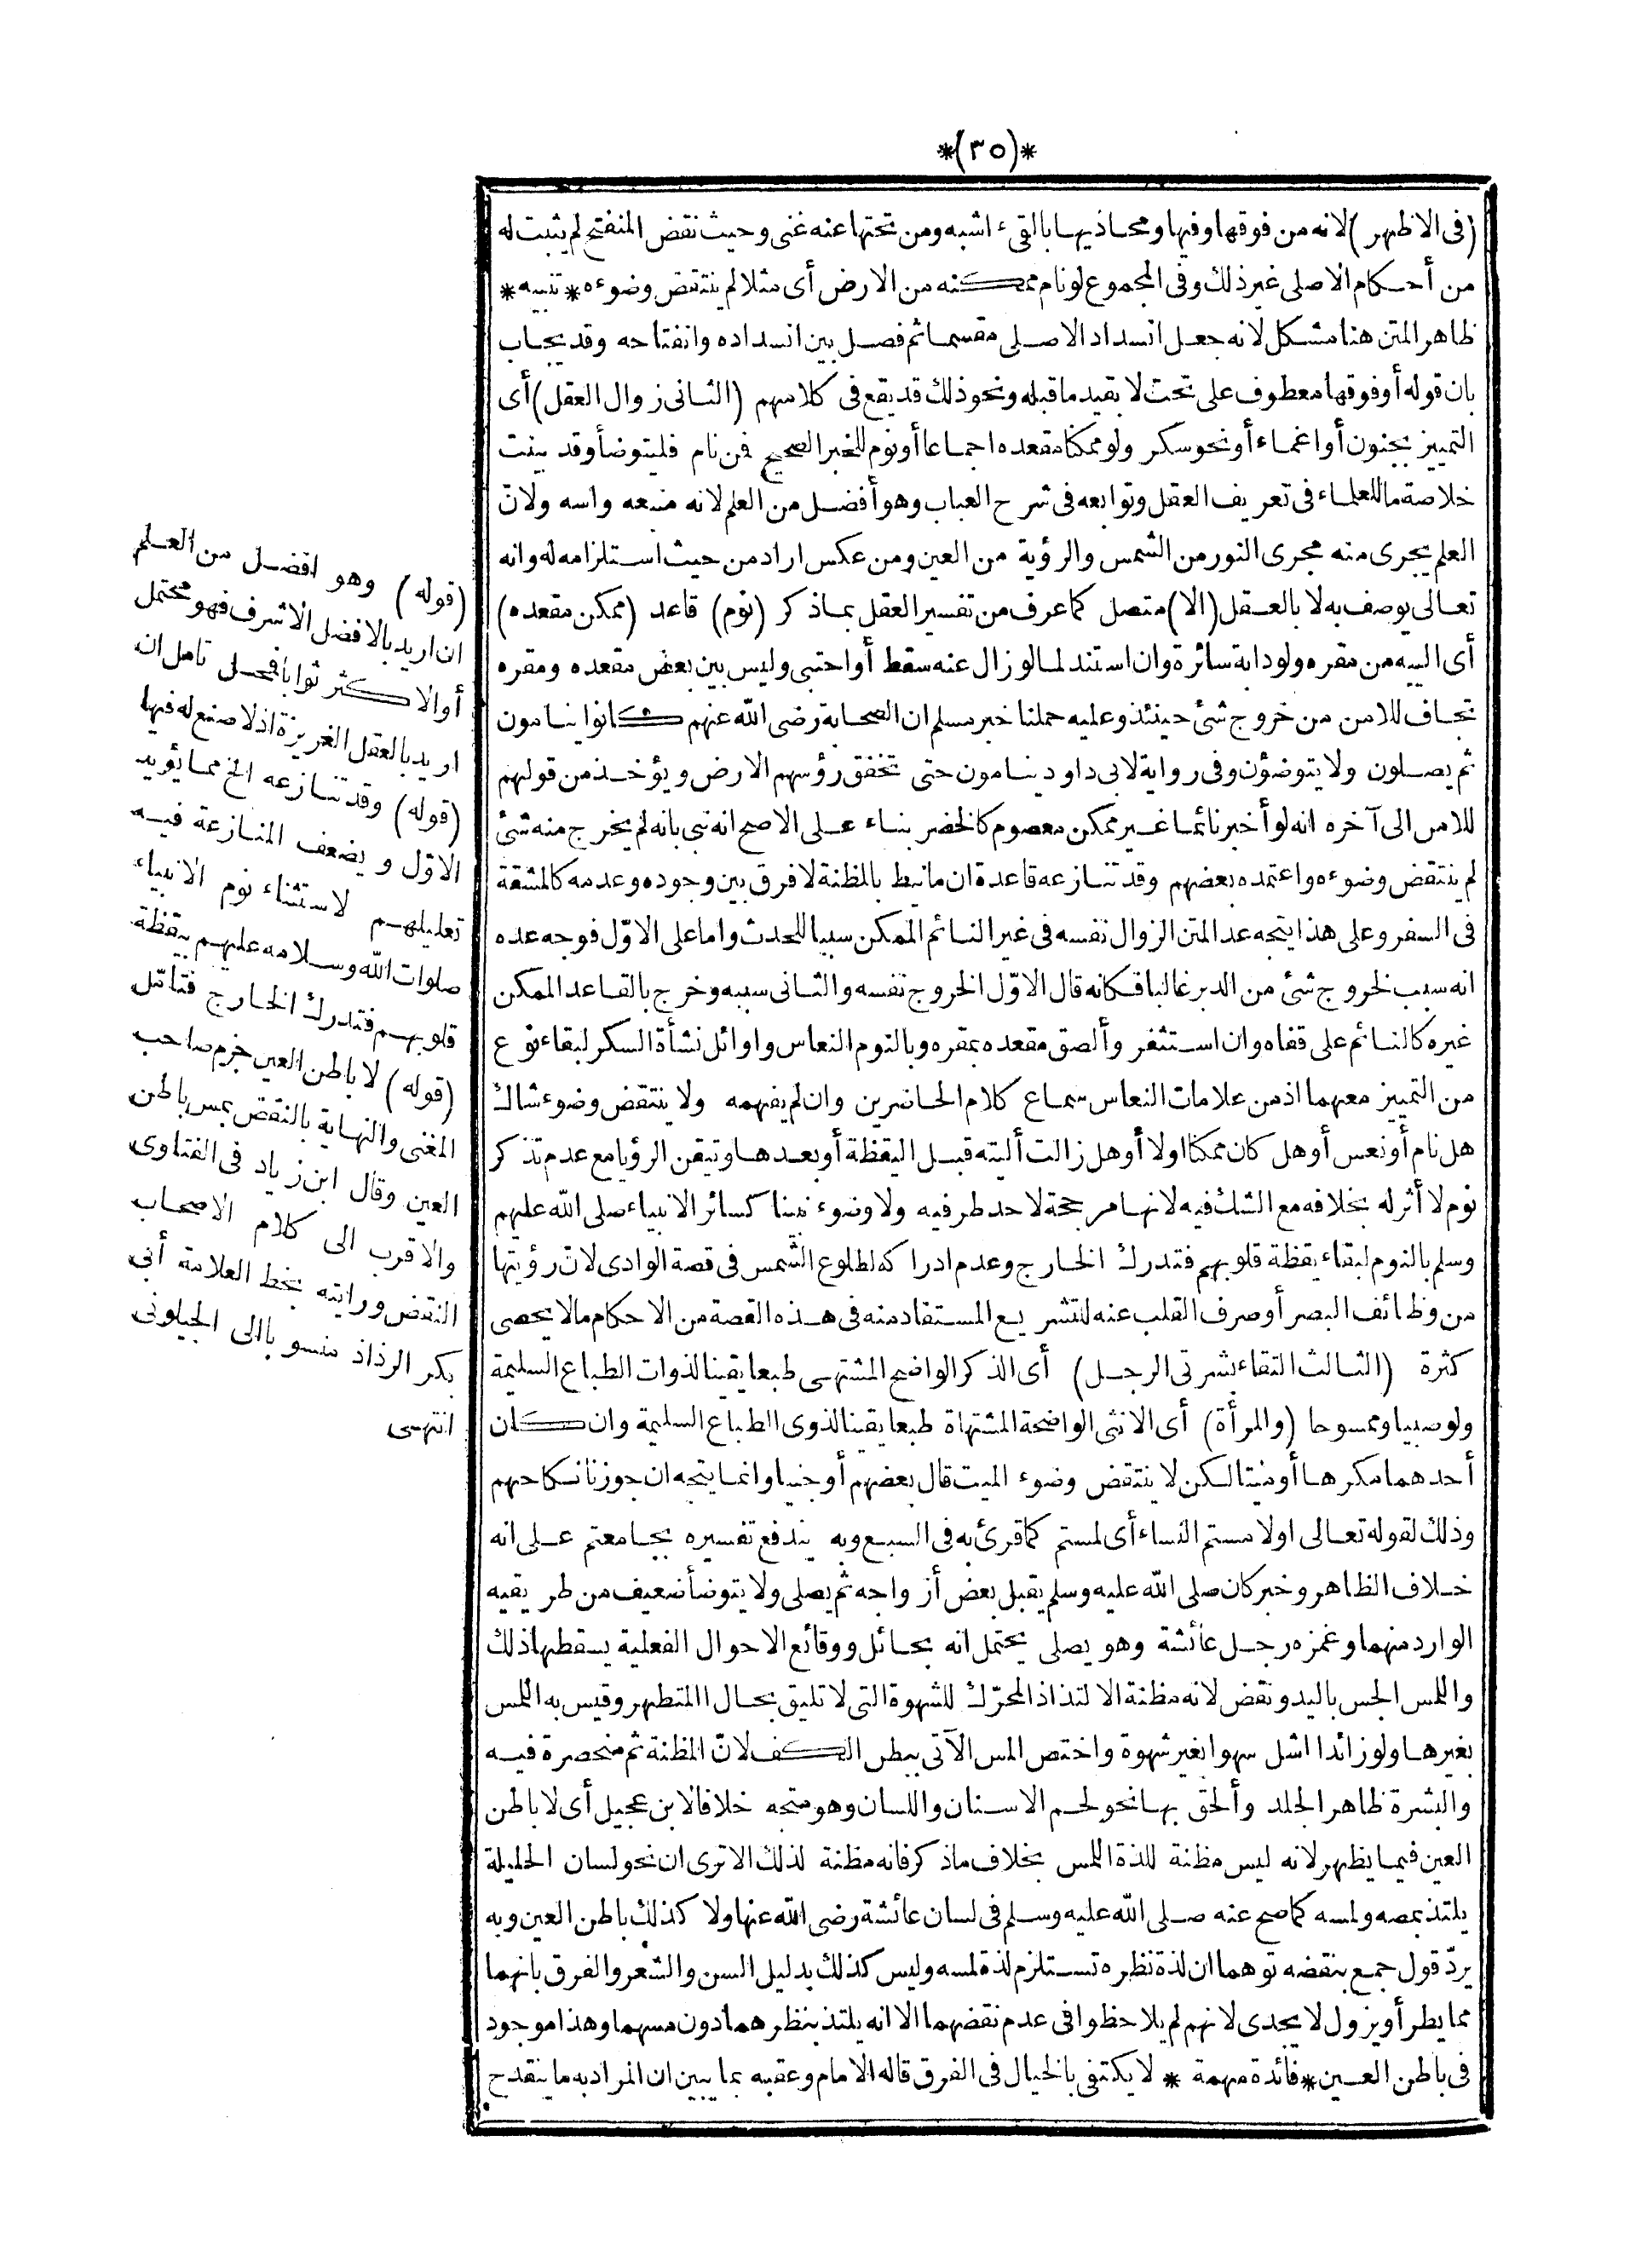 *(٣٥)*
(فى الاظهر) لانه من فوقها وفيها ومحاذيها بالقىء اشبه ومن تحتها عنه غنى وحيث نقض المنفتح لم يثبت له
من أحكام الاصلى غير ذلك وفى المجموع لو نام ممكنه من الارض أى مثلا لم ينتقض وضوءه * تنبيه *
ظاهر المتن هنا مشكل لانه جعل انسداد الاصلى مقسما ثم فصل بين انسداده وانفتاحه وقد يجاب
بان قوله أو فوقها معطوف على تحت لا بقيد ما قبله ونحو ذلك قد يقع فى كلامهم (الثانى زوال العقل) أى
التمييز بجنون أو اغماء أو نحو سكر ولو ممكنا مقعده اجماعا أو نوم للخبر الصحيح فمن نام فليتوضأ وقد بينت
خلاصة ما للعلماء فى تعريف العقل وتوابعه فى شرح العباب وهو أفضل من العلم لانه منبعه واسه ولانّ
العلم يجرى منه مجرى النور من الشمس والرؤية من العين ومن عكس اراد من حيث استلزامه له وانه
تعالى يوصف به لا بالعقل (الا) متصل كما عرف من تفسير العقل بما ذكر (نوم) قاعد (ممكن مقعده)
أى الييه من مقره ولو دابة سائرة وان استند لما لو زال عنه سقط أو احتبى وليس بين بعض مقعده ومقره
تجاف للامن من خروج شئ حينئذ وعليه حملنا خبر مسلم ان الصحابة رضى الله عنهم كانوا ينامون
ثم يصلون ولا يتوضؤن وفى رواية لابى داود ينامون حتى تخفق رؤسهم الارض ويؤخذ من قولهم
للامن الى آخره انه لو أخبر نائما غير ممكن معصوم كالخضر بناء على الاصح انه نبى بانه لم يخرج منه شئ
لم ينتقض وضوءه واعتمده بعضهم وقد تنازعه قاعدة ان ما نيط بالمظنة لا فرق بين وجوده وعدمه كالمشقة
فى السفر وعلى هذا يتجه عد المتن الزوال نفسه فى غير النائم الممكن سببا للحدث واما على الاوّل فوجه عده
انه سبب لخروج شئ من الدبر غالبا فكانه قال الاوّل الخروج نفسه والثانى سببه وخرج بالقاعد الممكن
غيره كالنائم على قفاه وان استثفر وألصق مقعده بمقره وبالنوم النعاس واوائل نشأة السكر لبقاء نوع
من التمييز معهما اذ من علامات النعاس سماع كلام الحاضرين وان لم يفهمه ولا ينتقض وضوء شاك
هل نام أو نعس أو هل كان ممكنا اولا أو هل زالت أليته قبل اليقظة أو بعدها وتيقن الرؤيا مع عدم تذكر
نوم لا أثر له بخلافه مع الشك فيه لانها مرجحة لاحد طرفيه ولا وضوء نبينا كسائر الانبياء صلى الله عليهم
وسلم بالنوم لبقاء يقظة قلوبهم فتدرك الخارج وعدم ادراكه لطلوع الشمس فى قصة الوادى لانّ رؤيتها
من وظائف البصر أو صرف القلب عنه للتشريع المستفاد منه فى هذه القصة من الاحكام مالا يحصى
كثرة (الثالث التقاء بشرتى الرجل) أى الذكر الواضح المشتهى طبعا يقينا لذوات الطباع السليمة
ولو صبيا وممسوحا (والمرأة) أى الانثى الواضحة المشتهاة طبعا يقينا لذوى الطباع السليمة وان كان
أحدهما مكرها أو ميتا لكن لا ينتقض وضوء الميت قال بعضهم أو جنيا وانما يتجه ان جوزنا نكاحهم
وذلك لقوله تعالى اولا مستم النساء أى لمستم كما قرئ به فى السبع وبه يندفع تفسيره بجامعتم على انه
خلاف الظاهر وخبر كان صلى الله عليه وسلم يقبل بعض أزواجه ثم يصلى ولا يتوضأ ضعيف من طريقيه
الوارد منهما وغمزه رجل عائشة وهو يصلى يحتمل انه بحائل ووقائع الاحوال الفعلية يسقطها ذلك
واللمس الجس باليد ونقض لانه مظنة الالتذاذ المحرّك للشهوة التى لا تليق بحال المتطهر وقيس به اللمس
بغيرها ولو زائدا اشل سهوا بغير شهوة واختص المس الآتى ببطن الكف لانّ المظنة ثم منحصرة فيه
والبشرة ظاهر الجلد وألحق بها نحو لحم الاسنان واللسان وهو متجه خلافا لابن عجيل أى لا باطن
العين فيما يظهر لانه ليس مظنة للذة اللمس بخلاف ما ذكر فانه مظنة لذلك الا ترى ان نحو لسان الحليلة
يلتذ بمصه ولمسه كما صح عنه صلى الله عليه وسلم فى لسان عائشة رضى الله عنها ولا كذلك باطن العين وبه
يردّ قول جمع بنقضه توهما ان لذة نظره تستلزم لذة لمسه وليس كذلك بدليل السن والشعر والفرق بانهما
مما يطرأ ويزول لا يجدى لانهم لم يلاحظوا فى عدم نقضهما الا انه يلتذ بنظرهما دون مسهما وهذا موجود
فى باطن العين * فائدة مهمة * لا يكتفى بالخيال فى الفرق قاله الامام وعقبه بما يبين ان المراد به ما ينقدح
(قوله) وهو افضل من العلم
ان اريد بالافضل الاشرف فهو محتمل
أو الاكثر ثوابا فمحل تامل ان
اريد بالعقل الغريزة اذ لا صنع له فيها
(قوله) وقد تنازعه الخ مما يؤيد
الاوّل ويضعف المنازعة فيه
تعليلهم لاستثناء نوم الانبياء
صلوات الله وسلامه عليهم بيقظة
قلوبهم فتدرك الخارج فتامّل
(قوله) لا باطن العين جزم صاحب
المغنى والنهاية بالنقض بمس باطن
العين وقال ابن زياد فى الفتاوى
والاقرب الى كلام الاصحاب
النقض ورايته بخط العلامة أبى
بكر الرذاذ منسوبا الى الجيلونى
انتهى